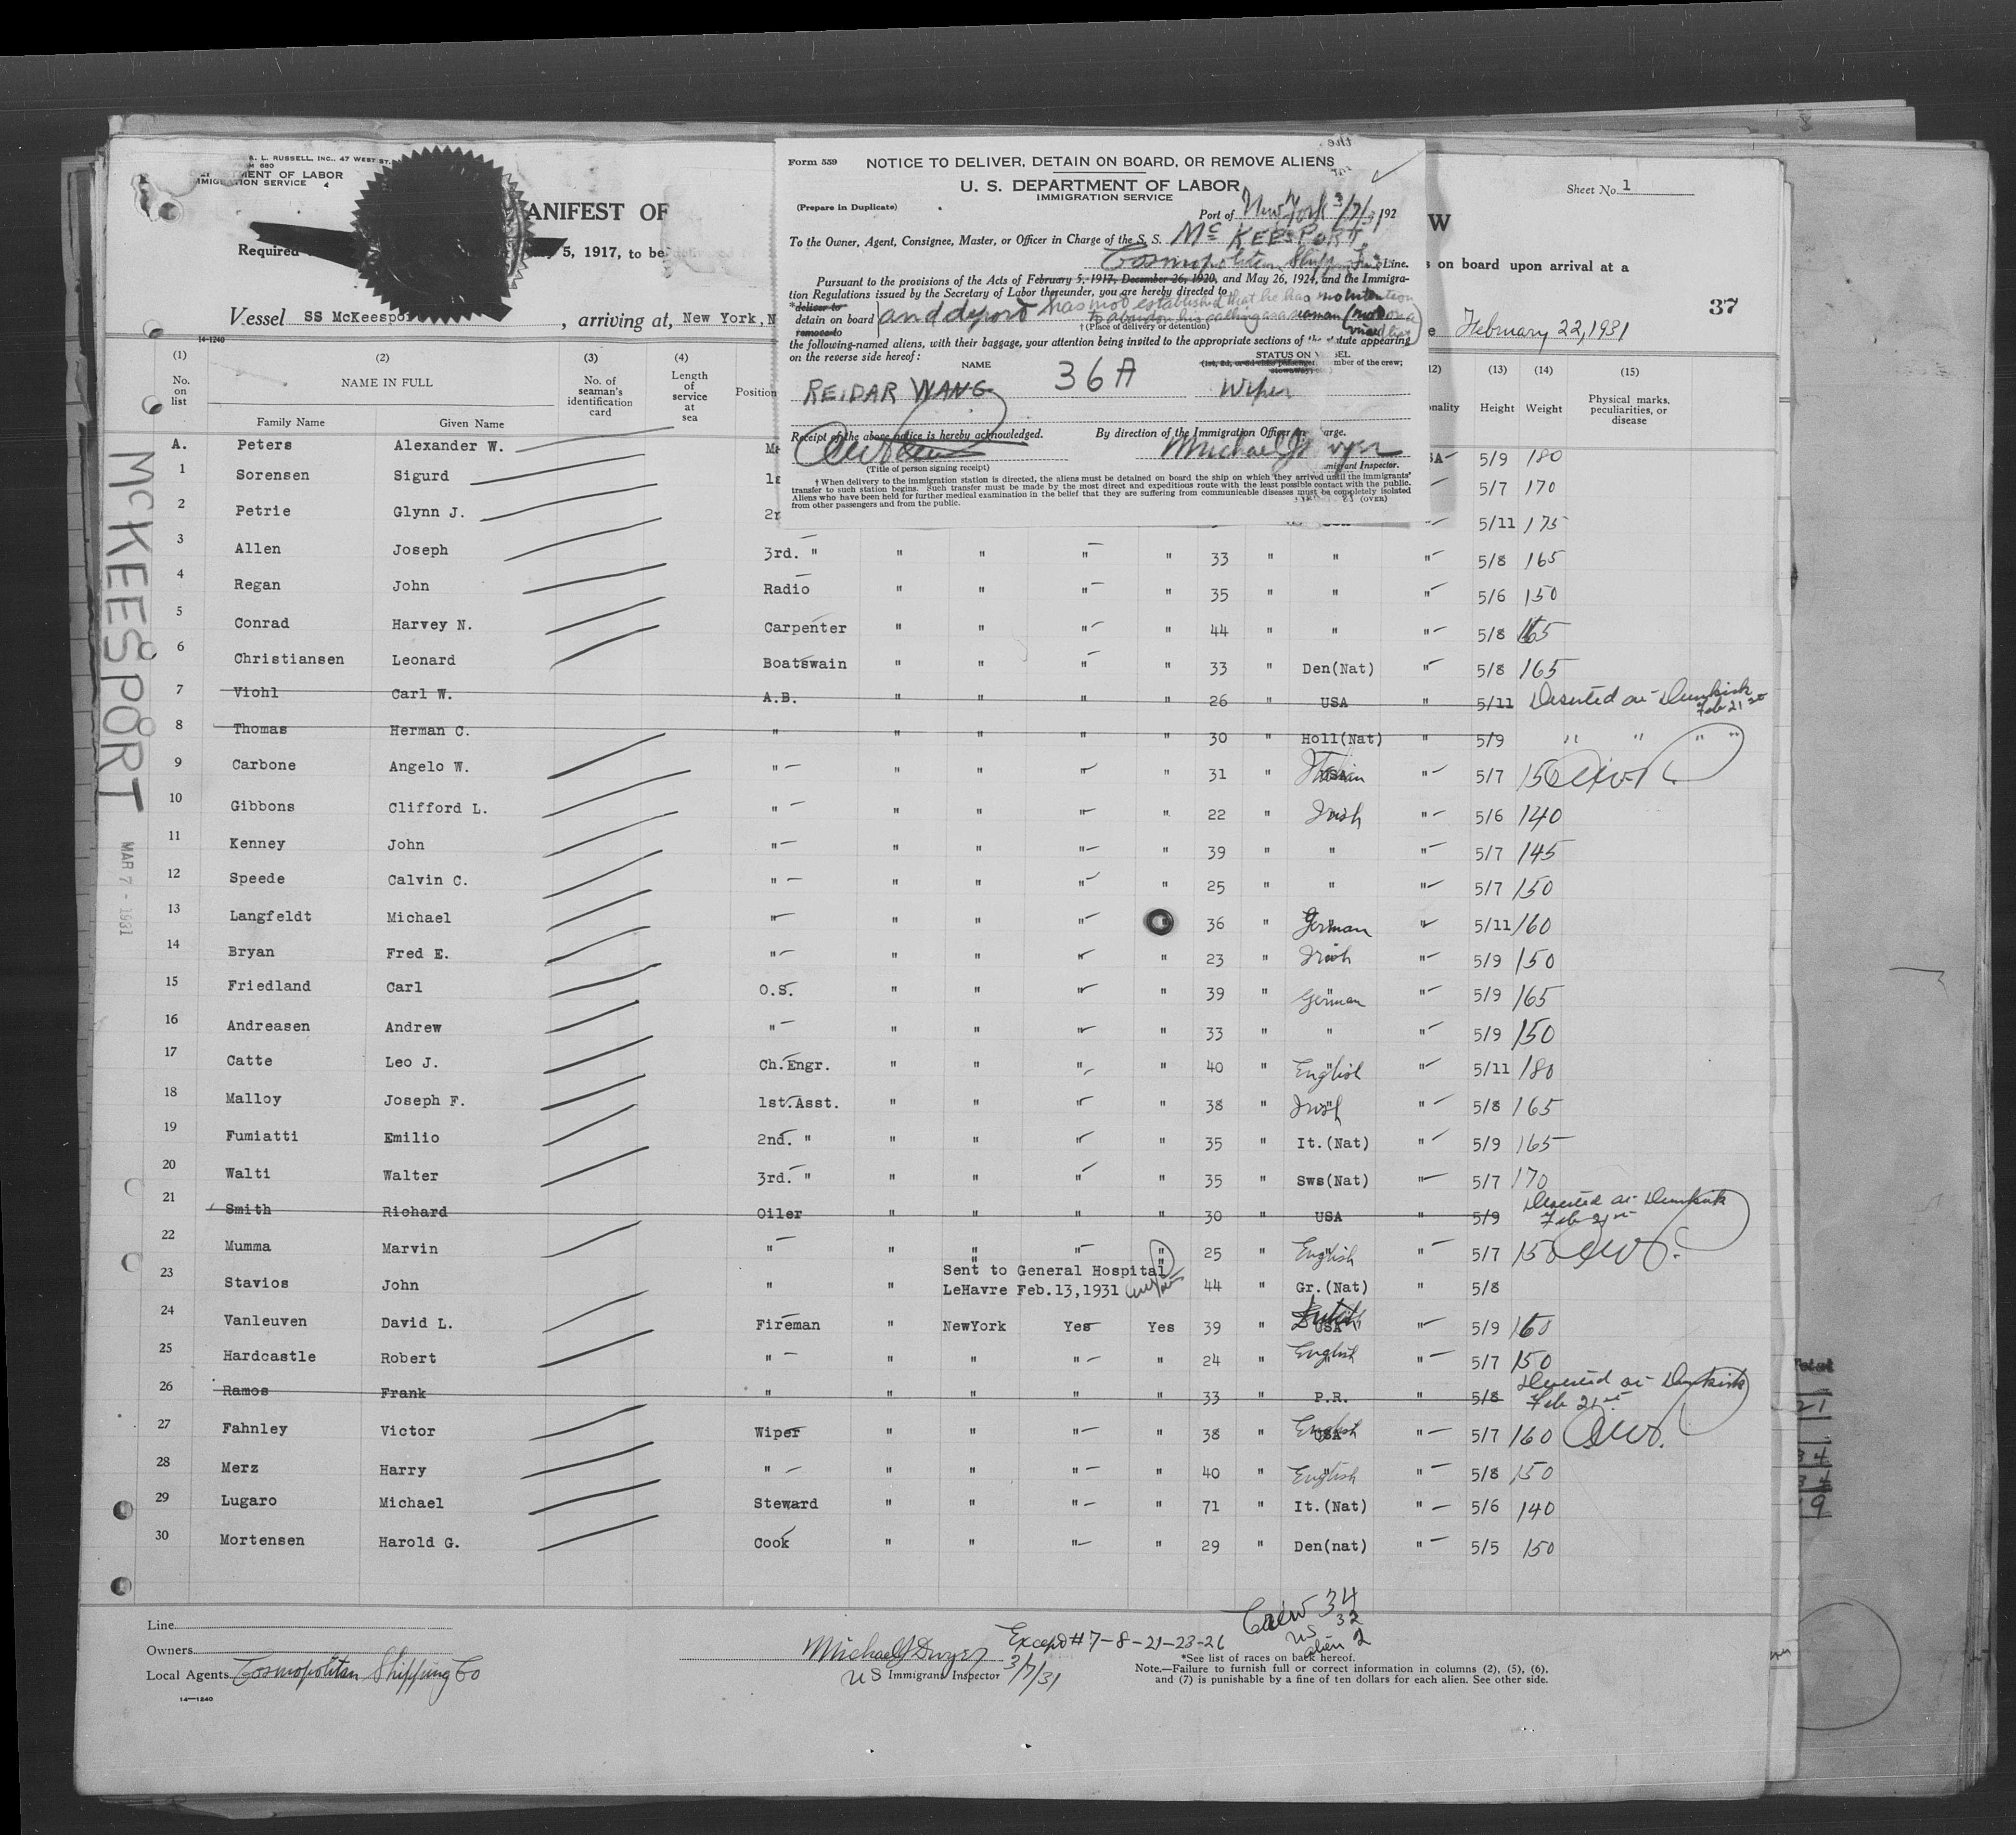 A. L. RUSSELL, INC., 47 WEST ST.
M 680
MENT OF LABOR
IMMIGRATION SERVICE
ANIFEST OF
W
Sheet No. 1
Required
5, 1917, to be
s on board upon arrival at a
Vessel SS McKeespor , arriving at, New York, N
e February 22, 1931
37
14-1240
Form 559
NOTICE TO DELIVER, DETAIN ON BOARD, OR REMOVE ALIENS
U. S. DEPARTMENT OF LABOR
IMMIGRATION SERVICE
(Prepare in Duplicate)
Port of New York 3/7/31 192
To the Owner, Agent, Consignee, Master, or Officer in Charge of the S. S. Mc KEESPORT
Cosmopolitan Shipp Line.
Pursuant to the provisions of the Acts of February 5, 1917, December 26, 1920, and May 26, 1924, and the Immigra-
tion Regulations issued by the Secretary of Labor thereunder, you are hereby directed to
*deliver to
detain on board and deport has not established that he has no intention
to abandon his calling as a seaman (not on a
visaed list)
remove to
† (Place of delivery or detention)
the following-named aliens, with their baggage, your attention being invited to the appropriate sections of the statute appearing
on the reverse side hereof:
NAME
STATUS ON V SEL
mber of the crew;
REIDAR WANG 36A Wiper
Receipt of the above notice is hereby acknowledged.
By direction of the Immigration Officer in arge.
Michael J Dwyer
(Title of person signing receipt)
migrant Inspector.
† When delivery to the immigration station is directed, the aliens must be detained on board the ship on which they arrived until the immigrants'
transfer to such station begins. Such transfer must be made by the most direct and expeditious route with the least possible contact with the public.
Aliens who have been held for further medical examination in the belief that they are suffering from communicable diseases must be completely isolated
from other passengers and from the public.
(OVER)
(1) (2) (3) (4) 12) (13) (14) (15)
No. on list
NAME IN FULL
Family Name Given Name
No. of seaman's identification card
Length of service at sea
Position
onality
Height
Weight
Physical marks, peculiarities, or disease
A. Peters Alexander W. Ma SA 5/9 180
1 Sorensen Sigurd 1s 5/7 170
2 Petrie Glynn J. 2n 5/11 175
3 Allen Joseph 3rd. " " " " " 33 " " " 5/8 165
4 Regan John Radio " " " " 35 " " " 5/6 150
5 Conrad Harvey N. Carpenter " " " " 44 " " " 5/8 165
6 Christiansen Leonard Boatswain " " " " 33 " Den(Nat) " 5/8 165
7 Viohl Carl W. A.B. " " " " 26 " USA " 5/11 Deserted at Dunkirk Feb 21st
8 Thomas Herman C. " " " " " 30 " Holl(Nat) " 5/9 " " " "
9 Carbone Angelo W. " " " " " 31 " Italian " 5/7 150
10 Gibbons Clifford L. " " " " " 22 " Irish " 5/6 140
11 Kenney John " " " " " 39 " " " 5/7 145
12 Speede Calvin C. " " " " " 25 " " " 5/7 150
13 Langfeldt Michael " " " " 36 " German " 5/11 160
14 Bryan Fred E. " " " " " 23 " Irish " 5/9 150
15 Friedland Carl O.S. " " " " 39 " German " 5/9 165
16 Andreasen Andrew " " " " " 33 " " " 5/9 150
17 Catte Leo J. Ch.Engr. " " " " 40 " English " 5/11 180
18 Malloy Joseph F. 1st.Asst. " " " " 38 " Irish " 5/8 165
19 Fumiatti Emilio 2nd. " " " " " 35 " It.(Nat) " 5/9 165
20 Walti Walter 3rd. " " " " " 35 " Sws(Nat) " 5/7 170
21 Smith Richard Oiler " " " " 30 " USA " 5/9 Deserted at Dunkirk Feb 21st
22 Mumma Marvin " " " " " 25 " English " 5/7 150
23 Stavios John " " Sent to General Hospital LeHavre Feb.13,1931 44 " Gr.(Nat) " 5/8
24 Vanleuven David L. Fireman " NewYork Yes Yes 39 " USA " 5/9 160
25 Hardcastle Robert " " " " " 24 " English " 5/7 150
26 Ramos Frank " " " " " 33 " P.R. " 5/8 Deserted at Dunkirk Feb 21st
27 Fahnley Victor Wiper " " " " 38 " USA English " 5/7 160
28 Merz Harry " " " " " 40 " English " 5/8 150
29 Lugaro Michael Steward " " " " 71 " It.(Nat) " 5/6 140
30 Mortensen Harold G. Cook " " " " 29 " Den(nat) " 5/5 150
McKEESPORT
MAR 7 - 1931
Total
21
34
34
19
Crew 34
US 32
alien 2
Line
Owners
Local Agents Cosmopolitan Shipping Co
14—1240
Michael J Dwyer Except # 7-8-21-23-26
US Immigrant Inspector 3/7/31
*See list of races on back hereof.
Note.—Failure to furnish full or correct information in columns (2), (5), (6),
and (7) is punishable by a fine of ten dollars for each alien. See other side.